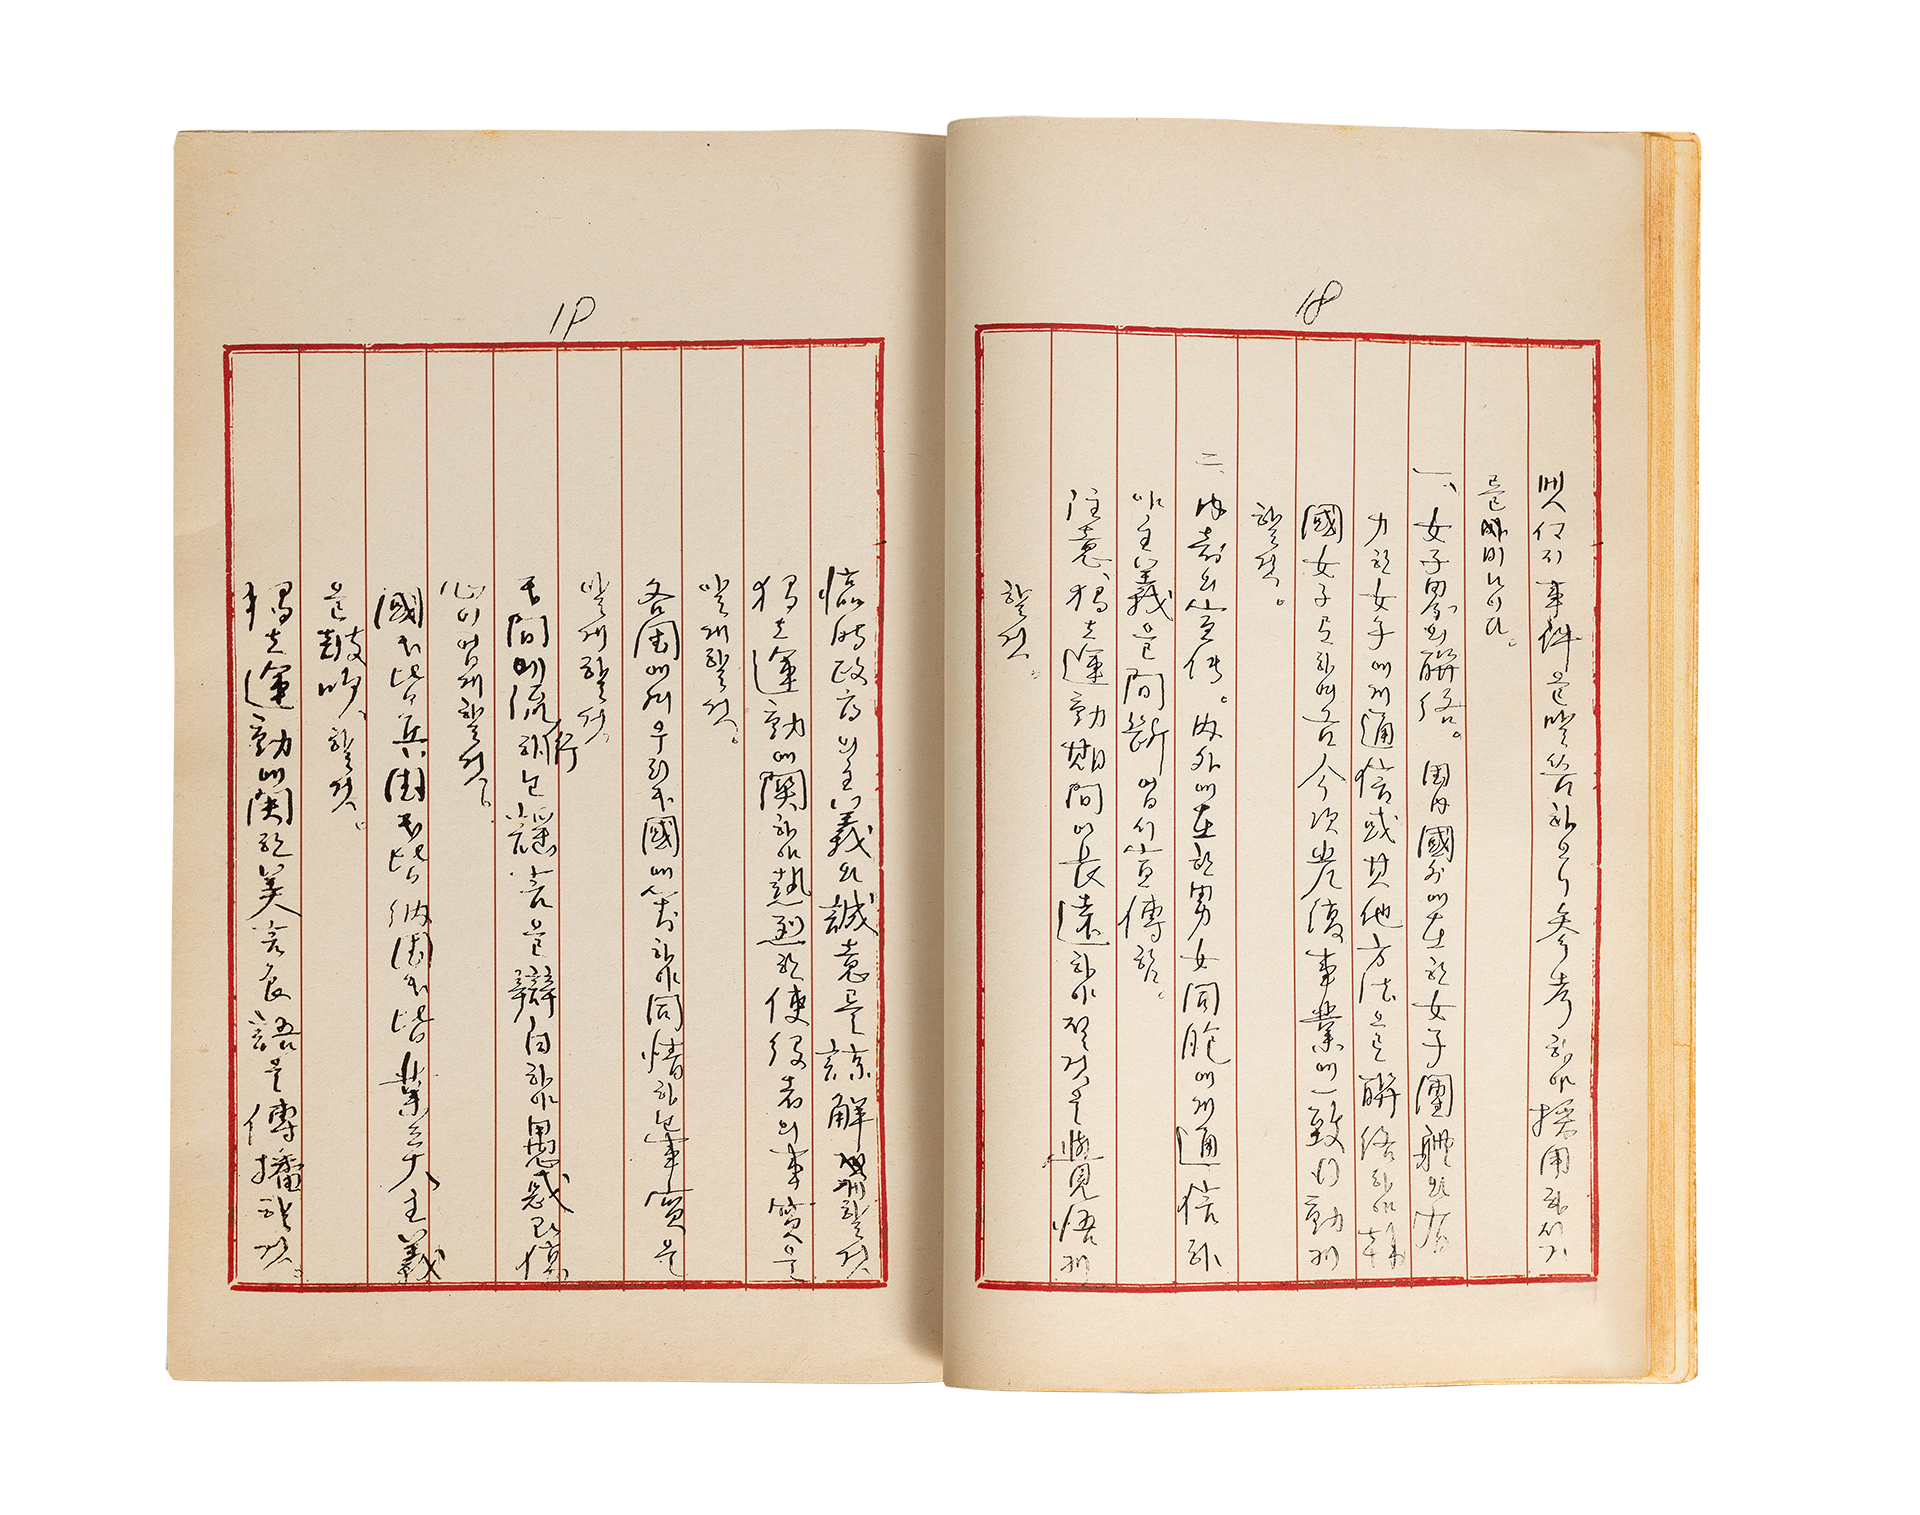 18
몃 가지 事件을 말씀하오니 參考하야 採用하시기
를 바라나이다。
一、女子界의 聯絡。國內國外에 在한 女子團體와 有
力한 女子에게 通信 或 其他 方法으로 聯絡하야 韓
國女子로 하여곰 今次 光復事業에 一致行動케
할 것。
二、內外의 宣傳。內外에 在한 男女同胞에게 通信하
야 主義을 間斷 업시 宣傳함。
注意、獨立運動 期間이 長遠하야질 것을 覺悟케
할 것。
19
臨時政府의 主義와 誠意를 諒解케 할 것
獨立運動에 關하야 熱烈한 使役者의 事實을
알게 할 것。
各國에서 우리 本國에 對하야 同情하는 事實을
알게 할 것。
民間에 流行하는 謠言을 辯白하야 愚惑 恐惶
心이 업게 할 것。
國民皆兵 國民皆納 國民皆業 三大主義
을 鼓吹할 것。
獨立運動에 關한 美言良語을 傳播할 것。